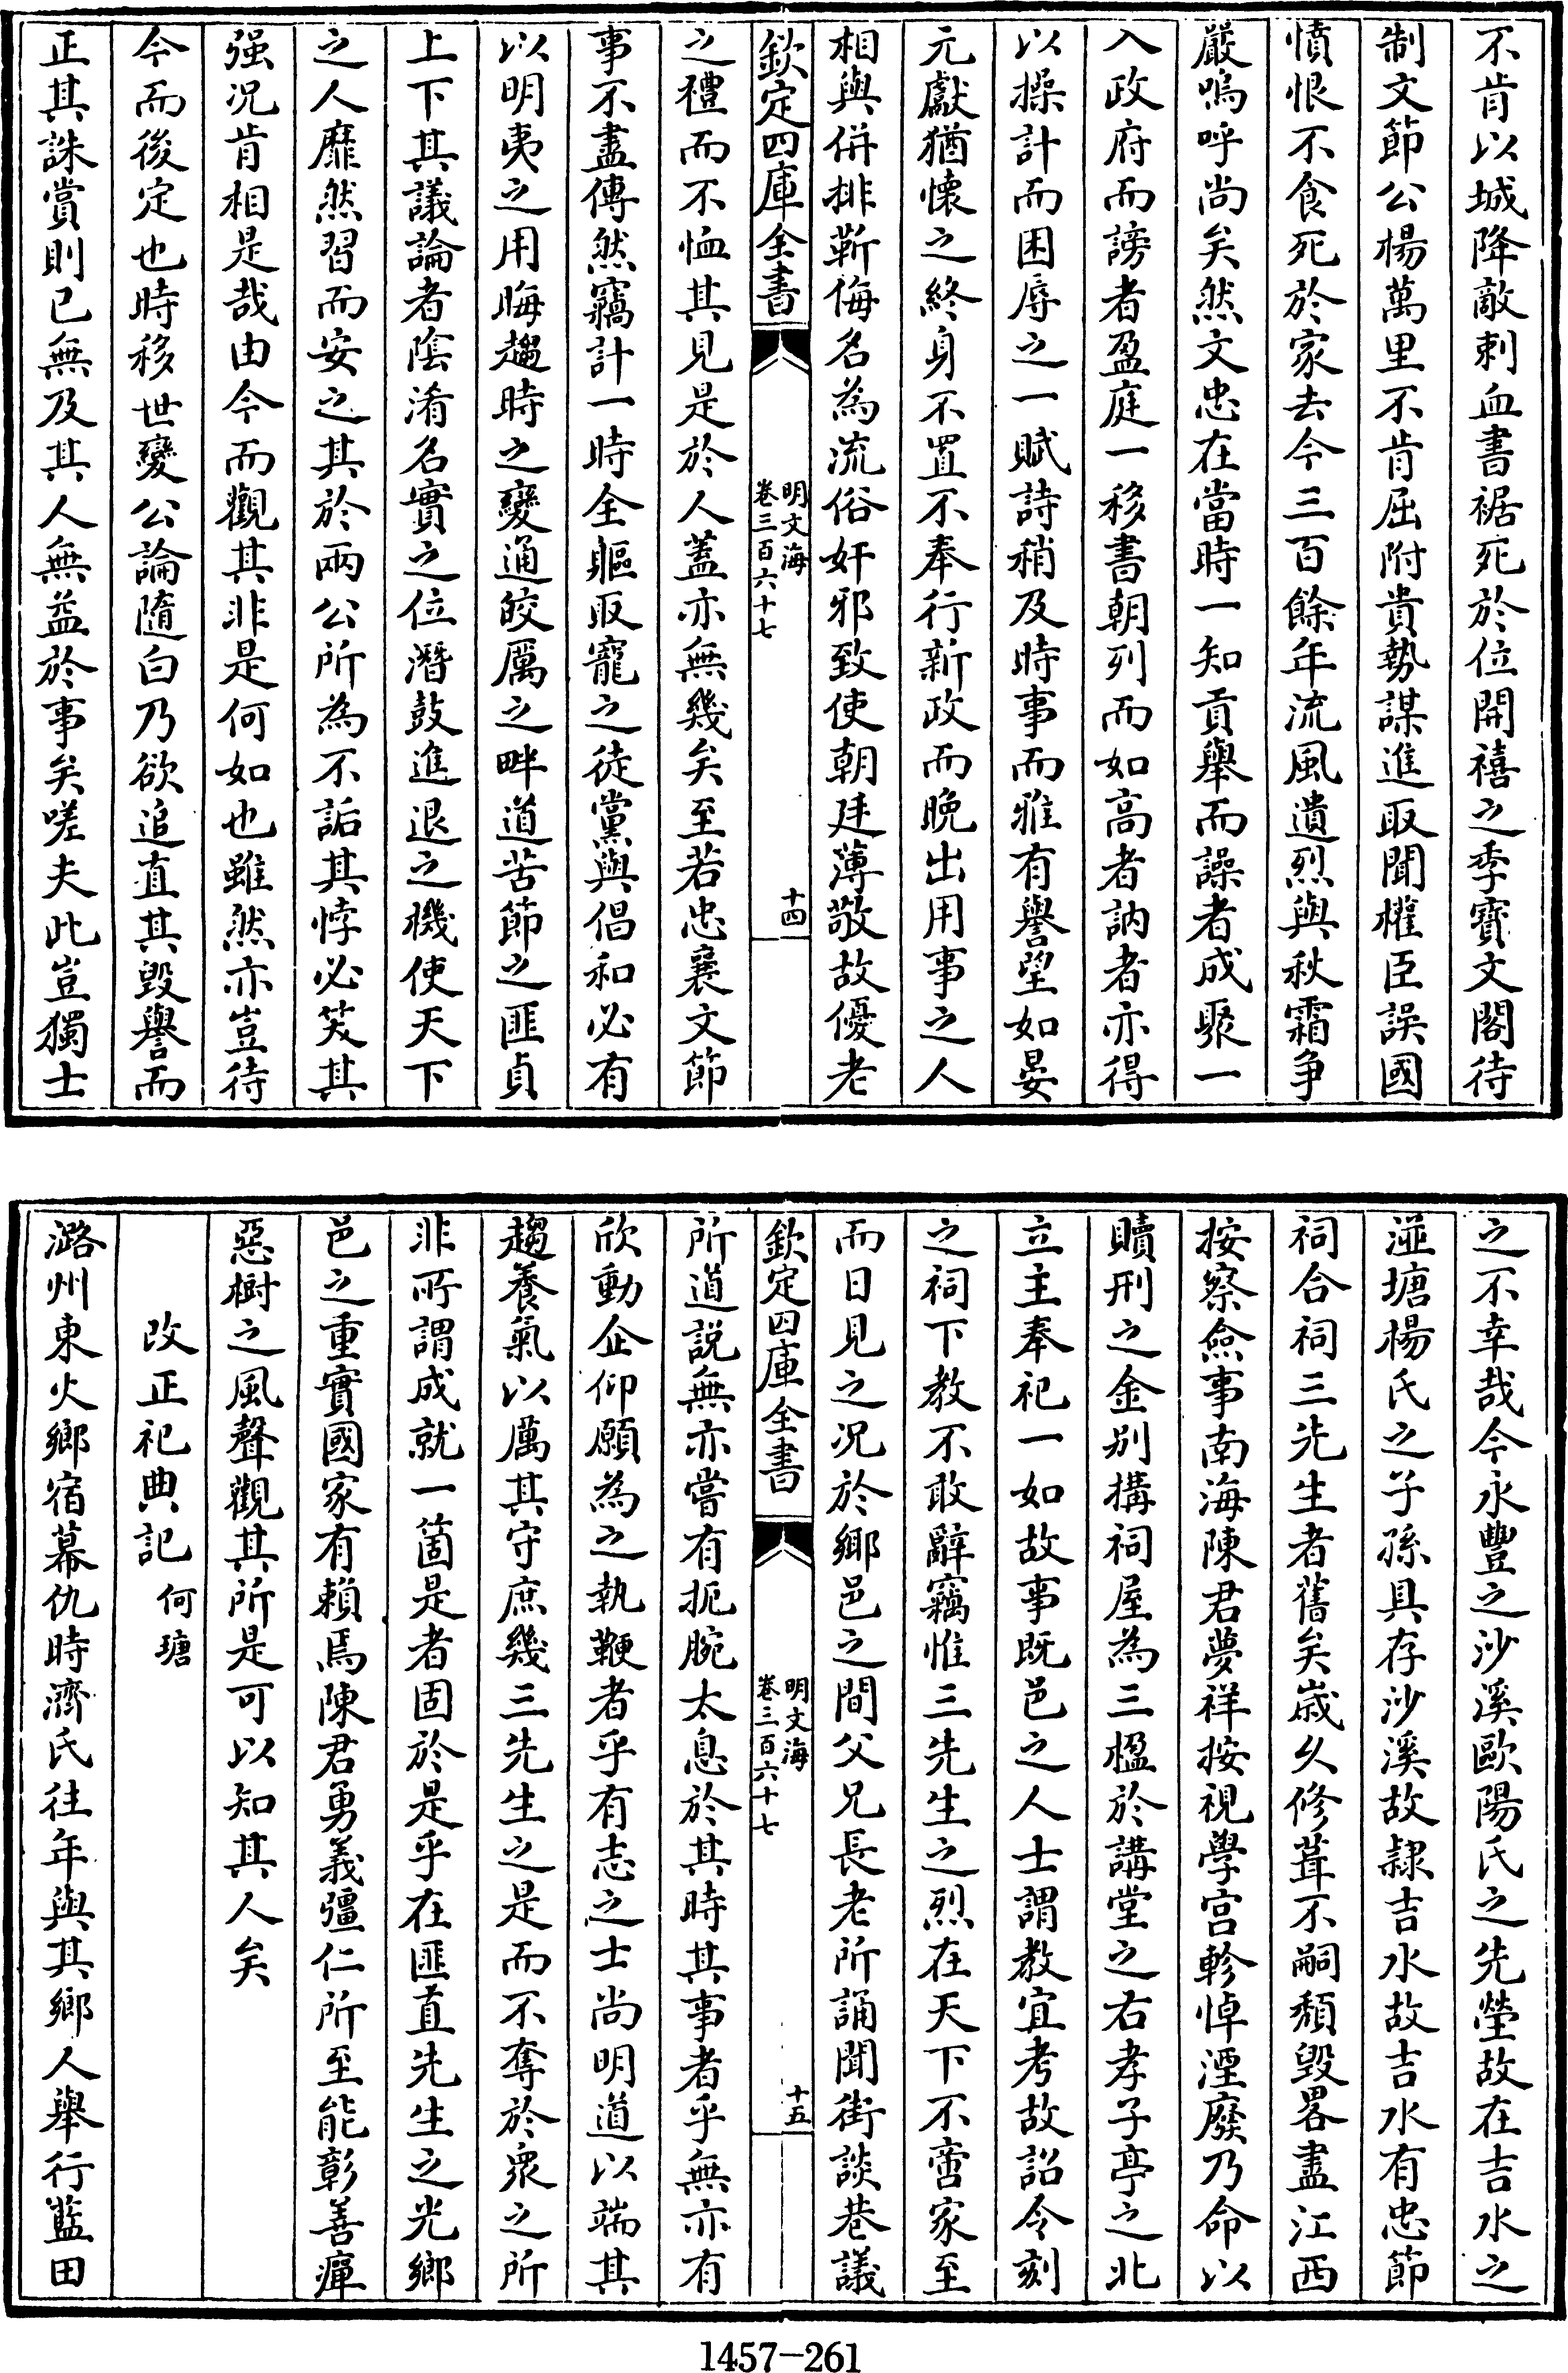 不肯以城降敵刺血書裾死於位開禧之季寳文閣待
制文節公楊萬里不肯屈附貴勢謀進取聞權臣誤國
憤恨不食死於家去今三百餘年流風遺烈與秋霜争
嚴嗚呼尚矣然文忠在當時一知貢舉而譟者成聚一
入政府而謗者盈庭一移書朝列而如高者訥者亦得
以操計而困辱之一賦詩稍及時事而雅有譽望如晏
元獻猶懐之終身不置不奉行新政而晩出用事之人
相與併排靳侮名為流俗奸邪致使朝廷薄敬故優老
欽定四庫全書
明文海
卷三百六十七
十四
之禮而不恤其見是於人蓋亦無幾矣至若忠襄文節
事不盡傳然竊計一時全軀取寵之徒黨與倡和必有
以明夷之用晦趨時之變通皎厲之畔道苦節之匪貞
上下其議論者隂淆名實之位潛鼓進退之機使天下
之人靡然習而安之其於兩公所為不詬其悖必笑其
强况肯相是哉由今而觀其非是何如也雖然亦豈待
今而後定也時移世變公論隨白乃欲追直其毁譽而
正其誅賞則已無及其人無益於事矣嗟夫此豈獨士
之不幸哉今永豐之沙溪歐陽氏之先塋故在吉水之
湴塘楊氏之子孫具存沙溪故隷吉水故吉水有忠節
祠合祠三先生者舊矣嵗乆修葺不嗣頽毁畧盡江西
按察僉事南海陳君夢祥按視學宫軫悼湮廢乃命以
贖刑之金别搆祠屋為三楹於講堂之右孝子亭之北
立主奉祀一如故事既邑之人士謂教宜考故詔令刻
之祠下教不敢辭竊惟三先生之烈在天下不啻家至
而日見之况於鄉邑之間父兄長老所誦聞街談巷議
欽定四庫全書
明文海
卷三百六十七
十五
所道説無亦嘗有扼腕太息於其時其事者乎無亦有
欣動企仰願為之執鞭者乎有志之士尚明道以端其
趨養氣以厲其守庶幾三先生之是而不奪於衆之所
非所謂成就一箇是者固於是乎在匪直先生之光鄉
邑之重實國家有賴焉陳君勇義彊仁所至能彰善癉
惡樹之風聲觀其所是可以知其人矣
改正祀典記 何瑭
潞州東火鄉宿幕仇時濟氏往年與其鄉人舉行藍田
1457-261